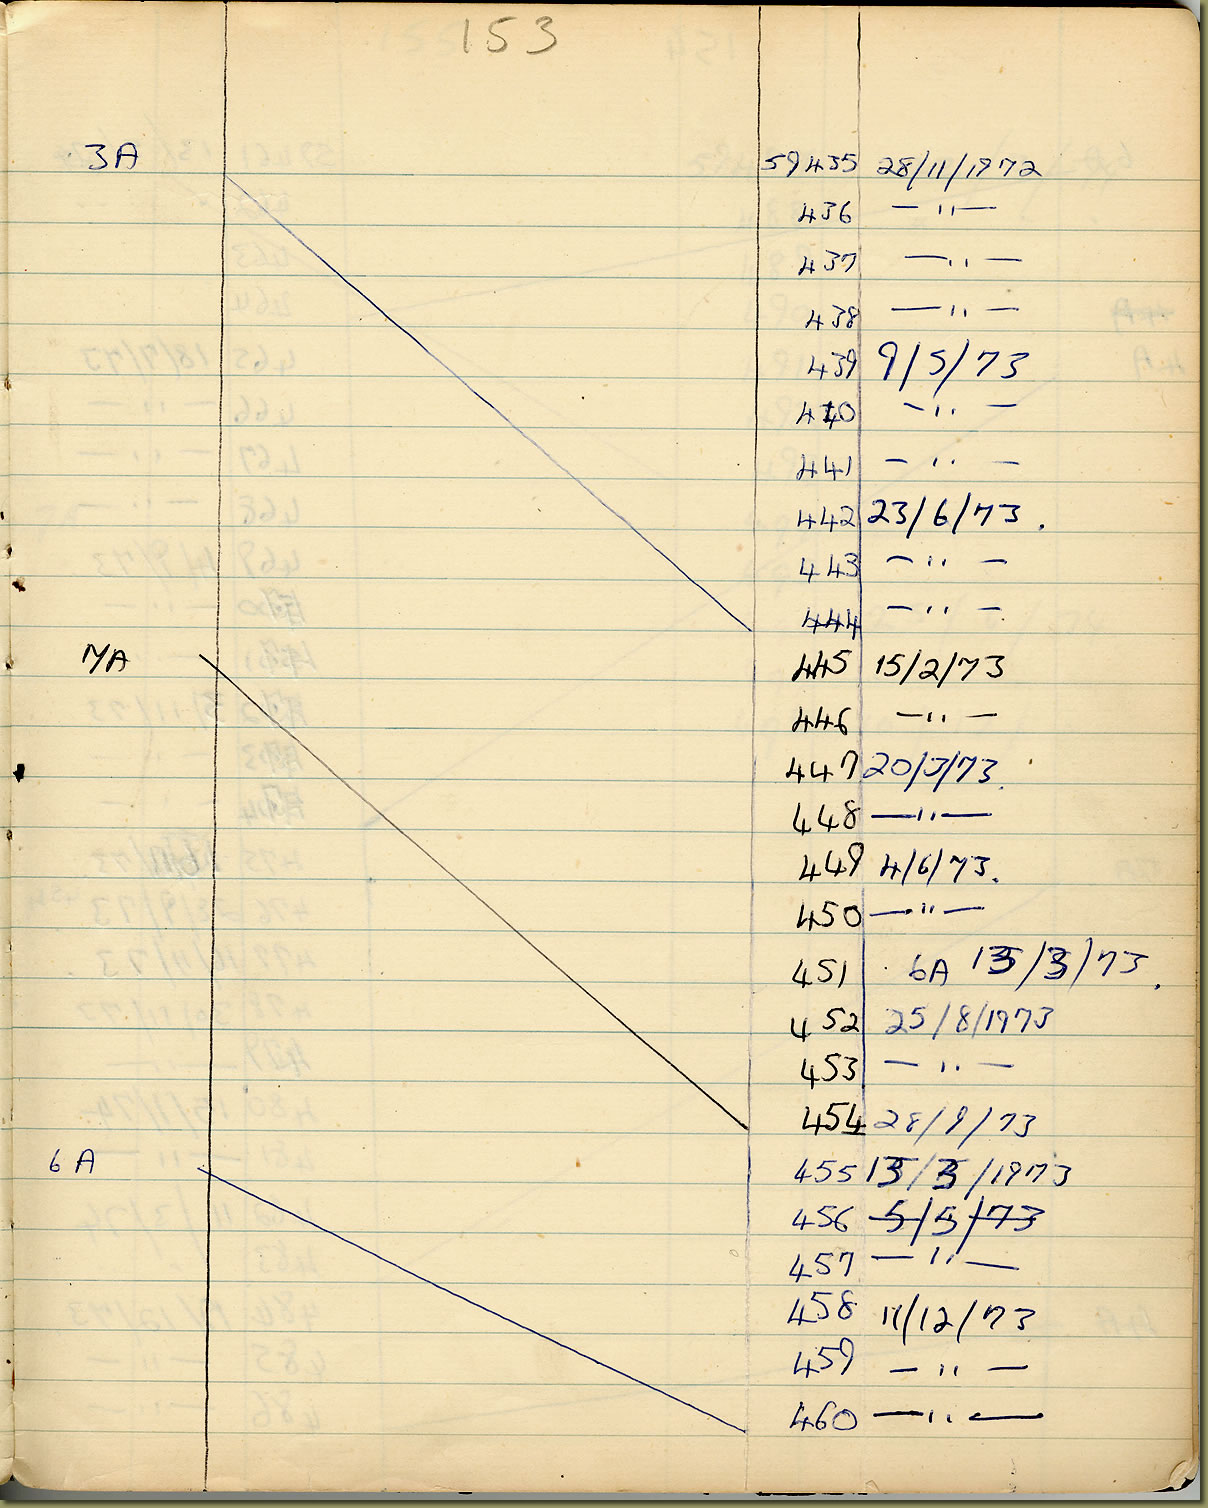 153
3A 59435 28/11/1972
436 — '' —
437 — '' —
438 — '' —
439 9/5/73
440 — '' —
441 — '' —
442 23/6/73.
443 — '' —
444 — '' —
7A 445 15/2/73
446 — '' —
447 20/3/73.
448 — '' —
449 4/6/73.
450 — '' —
451 6A 15/3/73.
452 25/8/1973
453 — '' —
454 28/9/73
6A 455 15/3/1973
456 5/5/73
457 — '' —
458 11/12/73
459 — '' —
460 — '' —